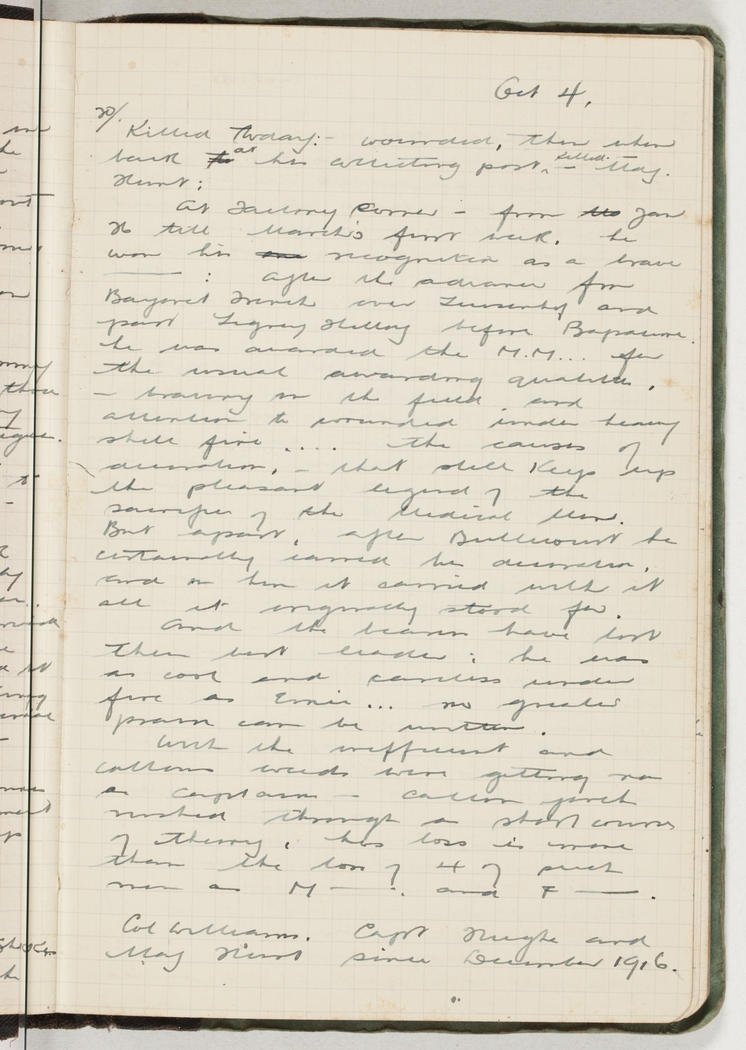 Oct 4.
20/.
Killed Today:- wounded, then when
back to at his collecting post, - killed Maj.
Hunt:
At Factory Corner - from Jan
till March's first week, he
won his recognition as a brave
——— : After the advance from
Bayonet Trench over and
past Ligny Thilloy before Bapaume.
he was awarded the M.M... for
the usual awarding qualities,
- bravery in the field, and
attention to wounded under heavy
shell fire .... the causes of
decoration, - that still keeps up
the pleasant legend of the
sacrifice of the Medical Men.
But apart, after Bullecourt he
certainly earned his decoration,
and on him it carried with it
all it originally stood for.
And the bearers have lost
their best leader: he was
as cool and careless under
fire as Ernie... no greater
praise can be written.
With the inefficient and
callow weeds were getting now
as captains - callow youth
rushed through a short course
of theory, his loss is more
than the loss of 4 of such
men as M——. and F——.
Col Williams. Capt Hughes and
Maj Hunt since December 1916.